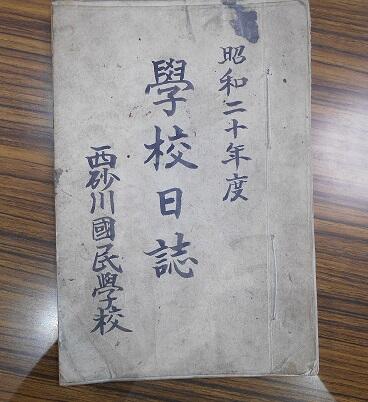 昭和二十年度
學校日誌
西砂川國民學校